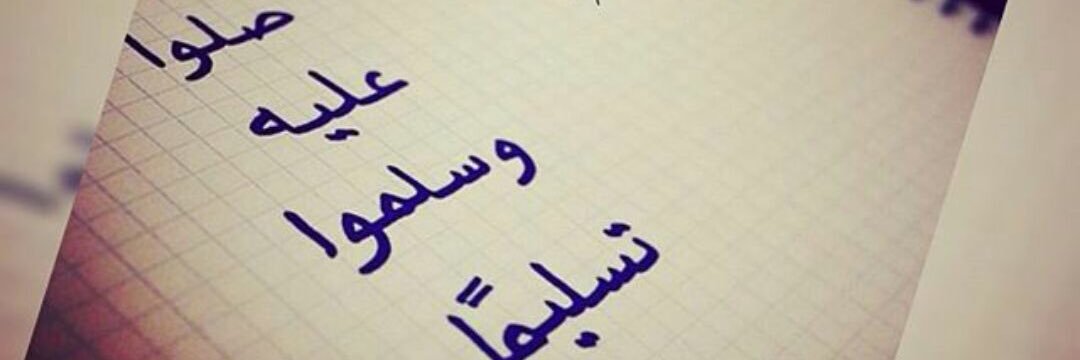 صلوا
عليه
وسلموا
تسليمًا